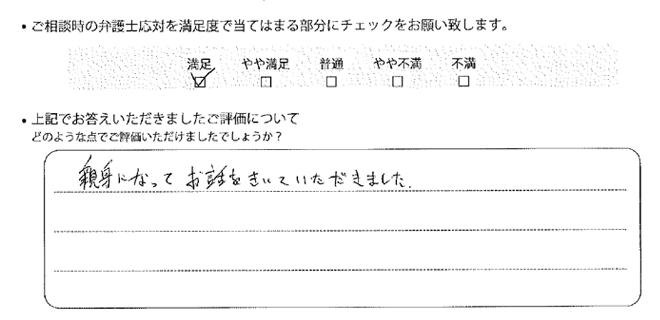 ・ご相談時の弁護士応対を満足度で当てはまる部分にチェックをお願い致します。
満足 やや満足 普通 やや不満 不満
☑ □ □ □ □
・上記でお答えいただきましたご評価について
どのような点でご評価いただけましたでしょうか？
親身になってお話をきいていただきました.